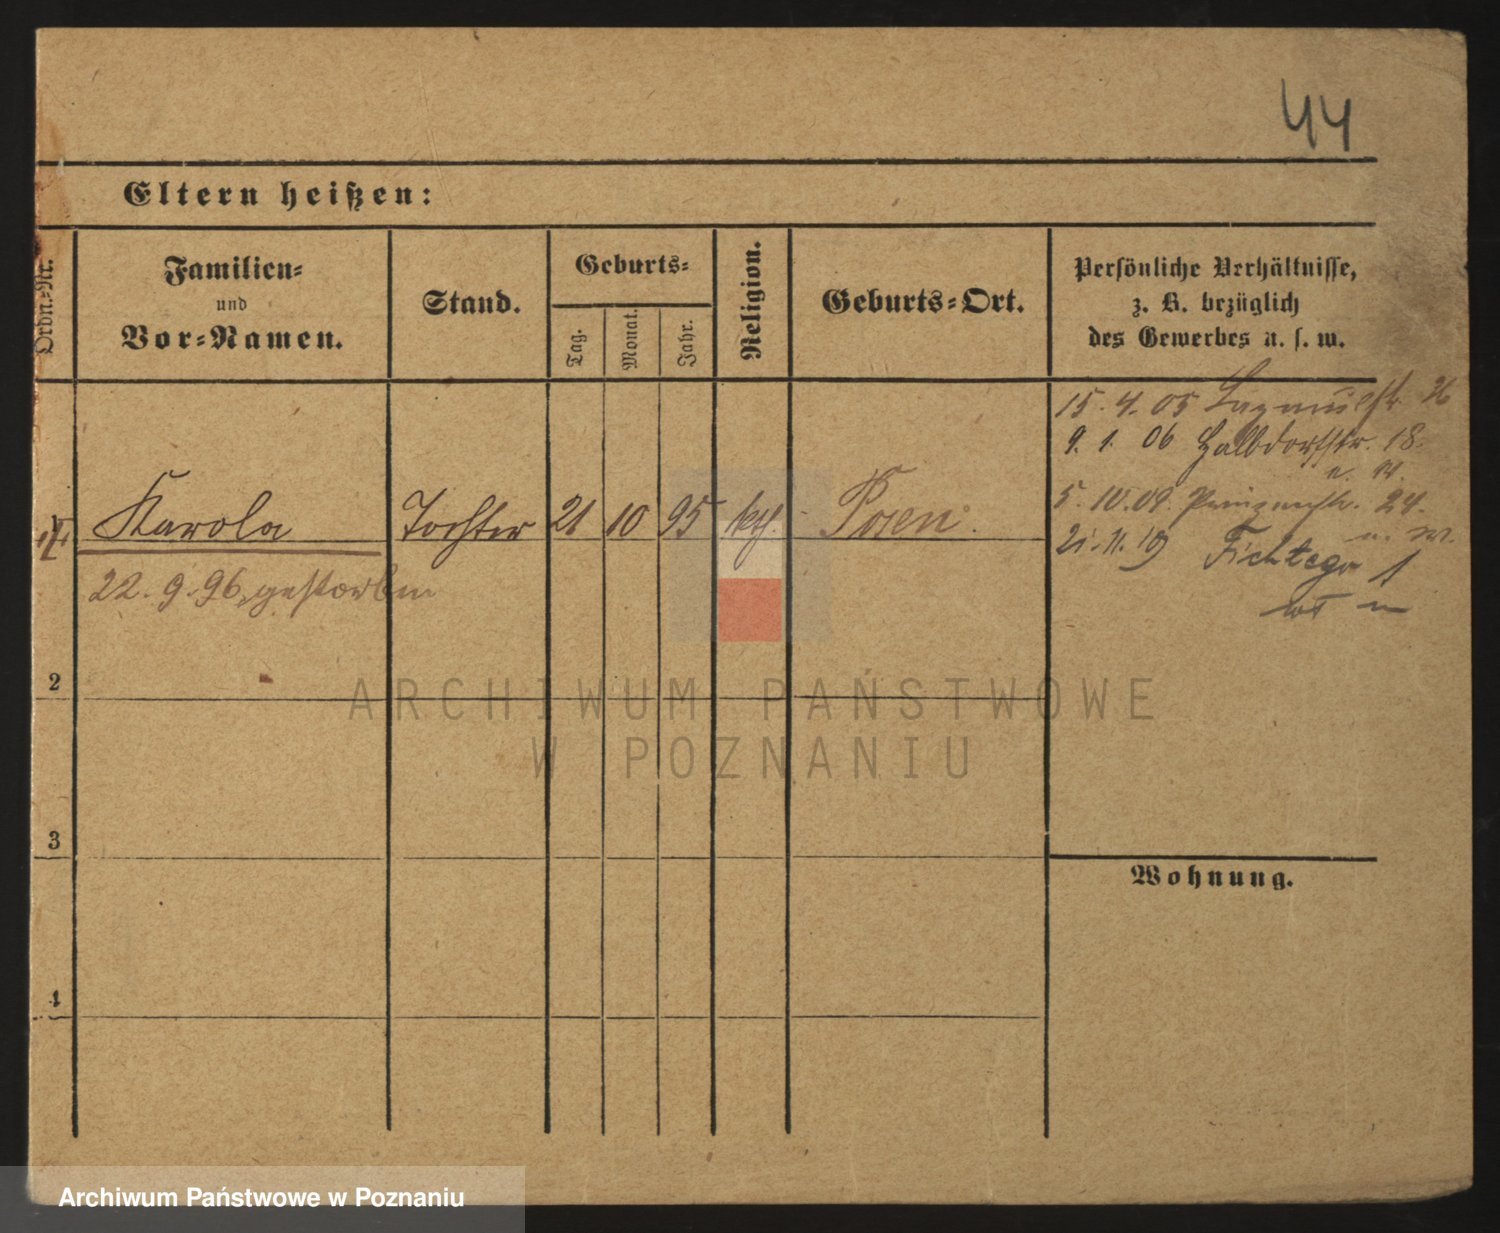 44
Eltern heißen:
Ordn.-Nr.
Familien-
und
Vor-Namen.
Stand.
Geburts-
Tag.
Monat.
Jahr.
Religion.
Geburts-Ort.
Persönliche Verhältnisse,
z. B. bezüglich
des Gewerbes u. s. w.
15. 4. 05
9. 1. 06 Halbdorfstr. 18.
5. 10. 09. Prinzenstr. 24.
21. 11. 19 Fichtestr 1
Karola Tochter 21 10 95 kth. Posen.
22. 9. 96 gestorben
2
3
4
Wohnung.
ARCHIWUM PAŃSTWOWE
W POZNANIU
Archiwum Państwowe w Poznaniu